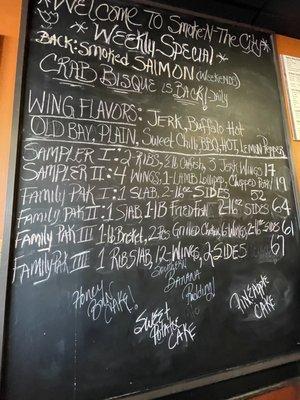 *Welcome To SmokeN-The City*
*Weekly Special*
Back: Smoked Salmon (weekends)
Crab Bisque is Back! Daily
Wing Flavors: Jerk, Buffalo Hot
Old Bay, Plain, Sweet Chili, BBQ, Hot, Lemon Pepper
Sampler I: 2 Ribs, Catfish, 3 Jerk Wings 17
Sampler II: 4 Wings, 1-Lamb Lollipop, Chopped Pork 19
Family Pak I: 1 Slab, 2-16oz Sides 52
Family Pak II: 1 Slab, 1-lb Fried Fish 2-16oz Sides 64
Family Pak III 1-lb Brisket, Grilled 6 Wings, 2-16oz Sides 61
Family Pak IIII 1 Rib Slab, 12-Wings, 2-Sides 67
Southern
Banana
Pudding!
Honey
Bun Cake!
Sweet
Potato
Cake
Pineapple
Cake